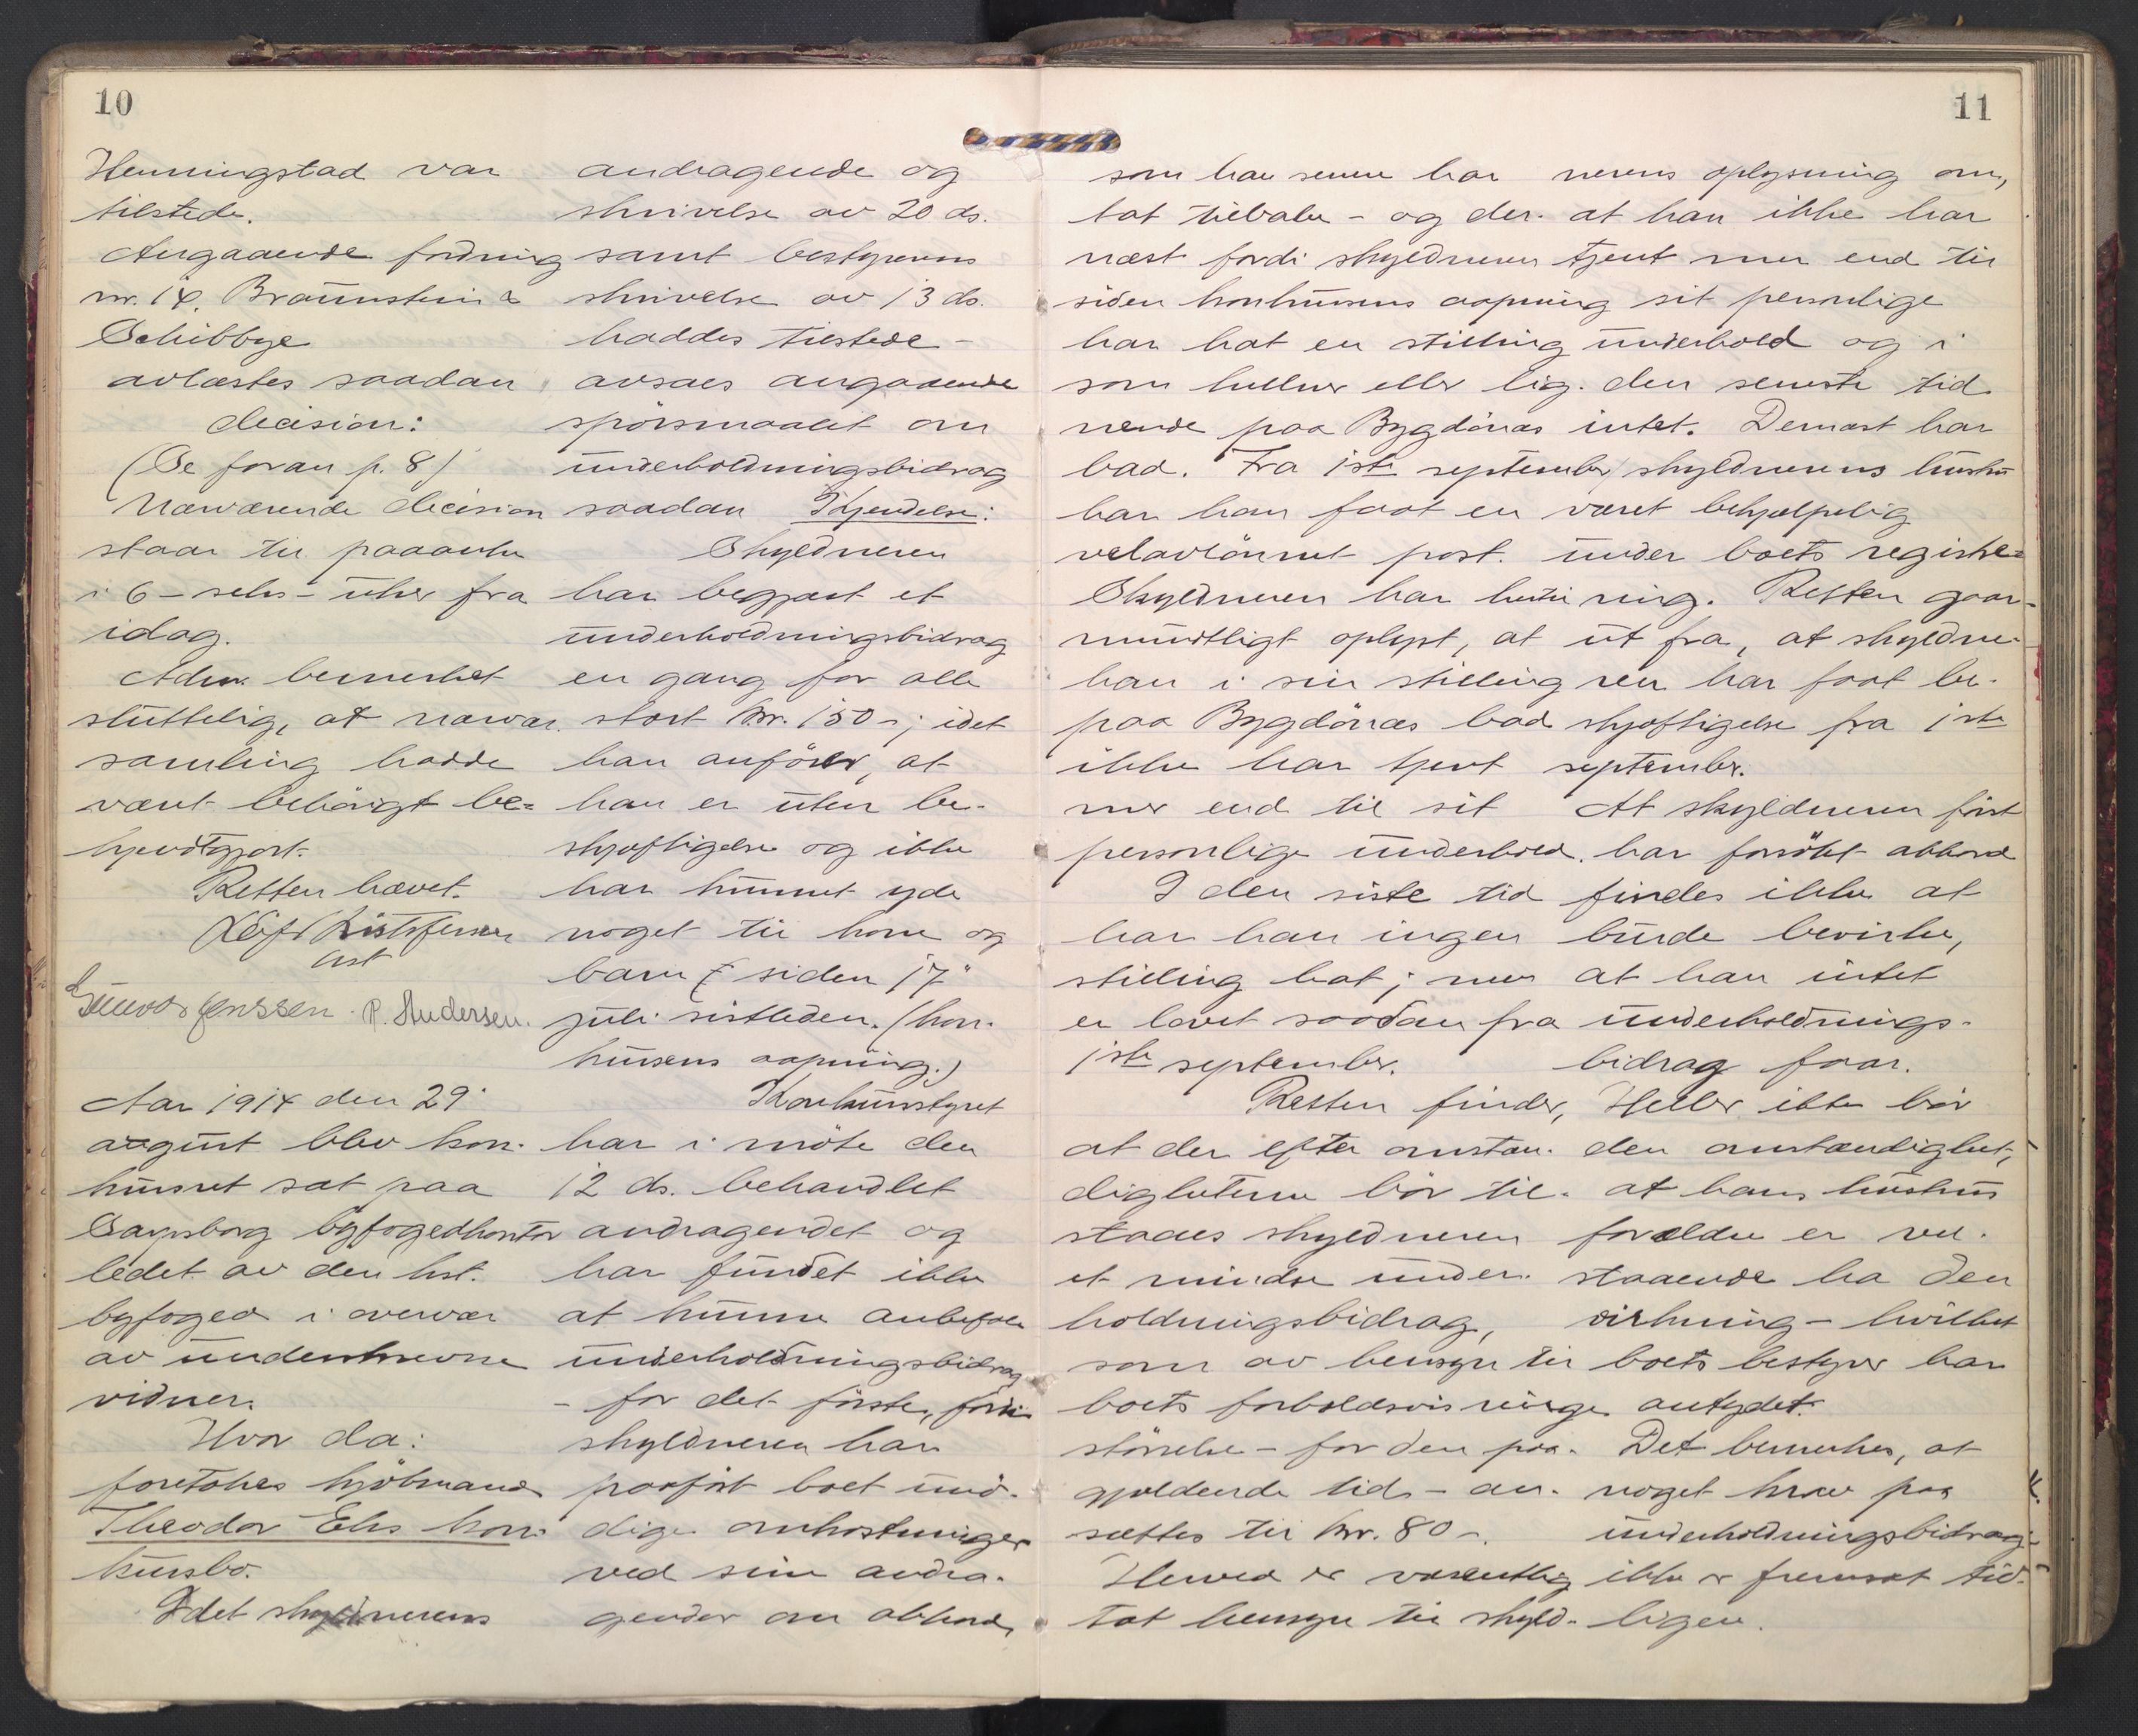 10
Henningstad var
tilstede.
Angaaende fordring
nr. 14, Braunstein &
Schibbye
avlæstes saadan
decision:
(Se foran p. 8)
Nærværende decision
staar til paaanke
i 6 - seks - uker fra
idag.
Adv. bemerket
sluttelig, at nærvær.
samling hadde
vært behörigt be=
kjendtgjort.
Retten hævet.
Leif Kristofersen
cst
Gunvor Jenssen. P. Andersen.
Aar 1914 den 29.
august blev kon-
kursret sat paa
Sarpsborg byfogedkontor
ledet av den kst.
byfoged i overvær
av underskrevne
vidner.
Hvor da:
foretokes kjöbmand
Theodor Eks kon-
kursbo.
Idet skyldnerens
andragende og
skrivelse av 20 ds.
samt bestyrerens
skrivelse av 13 ds.
haddes tilstede -
avsaes angaaende
spörsmaalet om
underholdningsbidrag
saadan Kjendelse:
Skyldneren
har begjært et
underholdningsbidrag
en gang for alle
stort kr. 150 -; idet
han anförer, at
han er uten be-
skjæftigelse og ikke
har kunnet yde
noget til kone og
barn siden 17"
juli sistleden. (kon-
kursens aapning.)
Konkursstyret
har i möte den
12 ds. behandlet
andragendet og
har fundet ikke
at kunne anbefale
underholdningsbidrag
- for det förste, fordi
skyldneren har
paaført boet unö-
dige omkostninger
ved sine andra-
gender om akkord,
11
som han senere har
tat tilbake - og der-
næst fordi skyldneren
siden konkursens aapning
har hat en stilling
som kelner eller lig-
nende paa Bygdönæs
bad. Fra 1ste september
har han faat en
velavlönnet post.
Skyldneren har hertil
mundtligt oplyst, at
han i sin stilling
paa Bygdönæs bad
ikke har tjent
mer end til sit
personlige underhold.
I den siste tid
har han ingen
stilling hat; men
er lovet saadan fra
1ste september.
Retten finder,
at der efter omstæn-
dighetene bör til-
staaes skyldneren
et mindre under-
holdningsbidrag,
som av hensyn til
boets forholdsvis ringe
störrelse - for den paa-
gjældende tid - an-
sættes til kr. 80 -.
Herved er væsentlig
tat hensyn til skyld-
nerens oplysning om,
at han ikke har
tjent mer end til
sit personlige
underhold og i
den seneste tid
intet. Dernæst har
skyldnerens hustru
været behjælpelig
under boets registre=
ring. Retten gaar
ut fra, at skyldne-
ren har faat be-
skjæftigelse fra 1ste
september.
At skyldneren först
har forsökt akkord
findes ikke at
burde bevirke,
at han intet
underholdnings-
bidrag faar.
Heller ikke bör
den omstændighet,
at hans hustrus
forældre er vel-
staaende ha den
virkning - hvilket
boets bestyrer har
antydet.
Det bemerkes, at
noget krav paa
underholdningsbidrag
ikke er fremsat tid-
ligere.